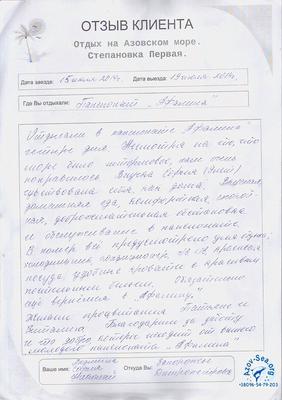 ОТЗЫВ КЛИЕНТА
Отдых на Азовском море.
Степановка Первая.
Дата заезда: 15 июля 2014г. Дата выезда: 19 июля 2014г.
Где Вы отдыхали: Пансионат "Афалина"
Отдыхали в пансионате "Афалина"
четыре дня. Несмотря на то, что
море было штормовое, нам очень
понравилось.
чувствовали себя, как дома. Вкусная,
домашняя еда, комфортная,
доброжелательная обстановка
и обслуживание в пансионате.
В номере всё предусмотрено для отдыха:
холодильник, кондиционер, красивая
посуда, удобные кровати с красивым
постельным бельём. Обязательно
ещё вернёмся в "Афалину".
Желаем процветания Татьяне и
Виталию. Благодарим за заботу
и то добро которое исходит от
молодого пансионата "Афалина"
Ваше имя: Людмила Николай Откуда Вы: Запорожье Днепропетровск
Azov-Sea.org
+38096-54-79-203